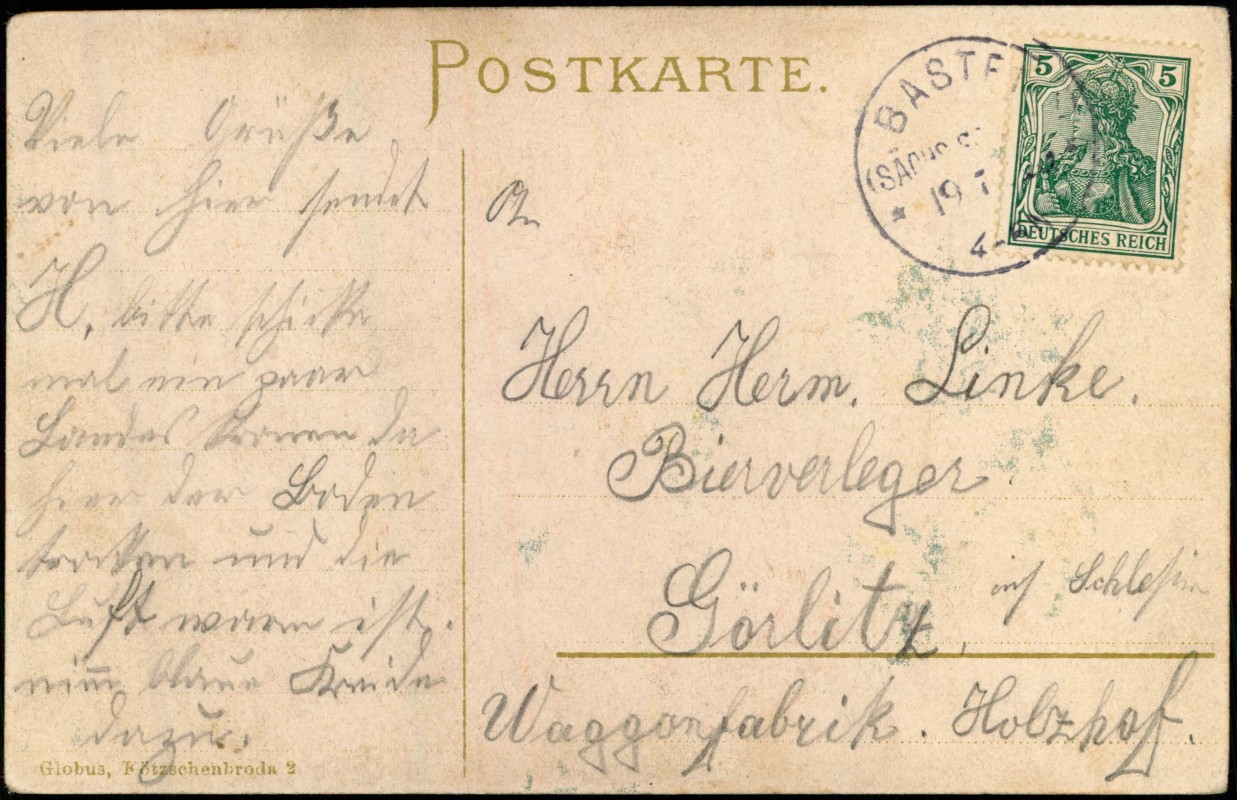 POSTKARTE.
BASTEI
(SÄCHS.
19 7
5 5
DEUTSCHES REICH
Viele Grüße
von hier sendet
H, bitte schicke
mal ein paar
Landes Kronen da
hier der Boden
trocken und die
Luft warm ist.
nim̅ blaue Kreide
dazu.
An
Herrn Herm. Linke.
Bierverleger
Görlitz, Schlesien
Waggonfabrik. Holzhof.
Globus, Kötzschenbroda 2